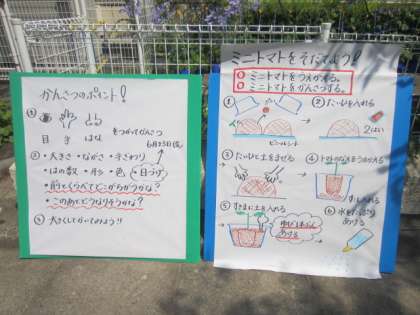 かんさつのポイント!
①
目 手 はな
をつかってかんさつ
6月25日(金)
② ・大きさ ・ながさ ・手ざわり
・はの数 ・形 ・色 ・日づけ
・前とくらべてどこがちがうかな?
・このあとどうなりそうかな?
③ 大きくしてかこう!!
ミニトマトをそだてよう!
ミニトマトをうえかえする。
ミニトマトをかんさつする。
①
ビニールシート
② たいひを入れる
2はい
③ たいひと土をまぜる
④ トマトのなえをうえかえる
土を入れる
⑤ すきまに土を入れる
ゆび1本ぶん
あける
⑥ 水をたっぷり
あげる